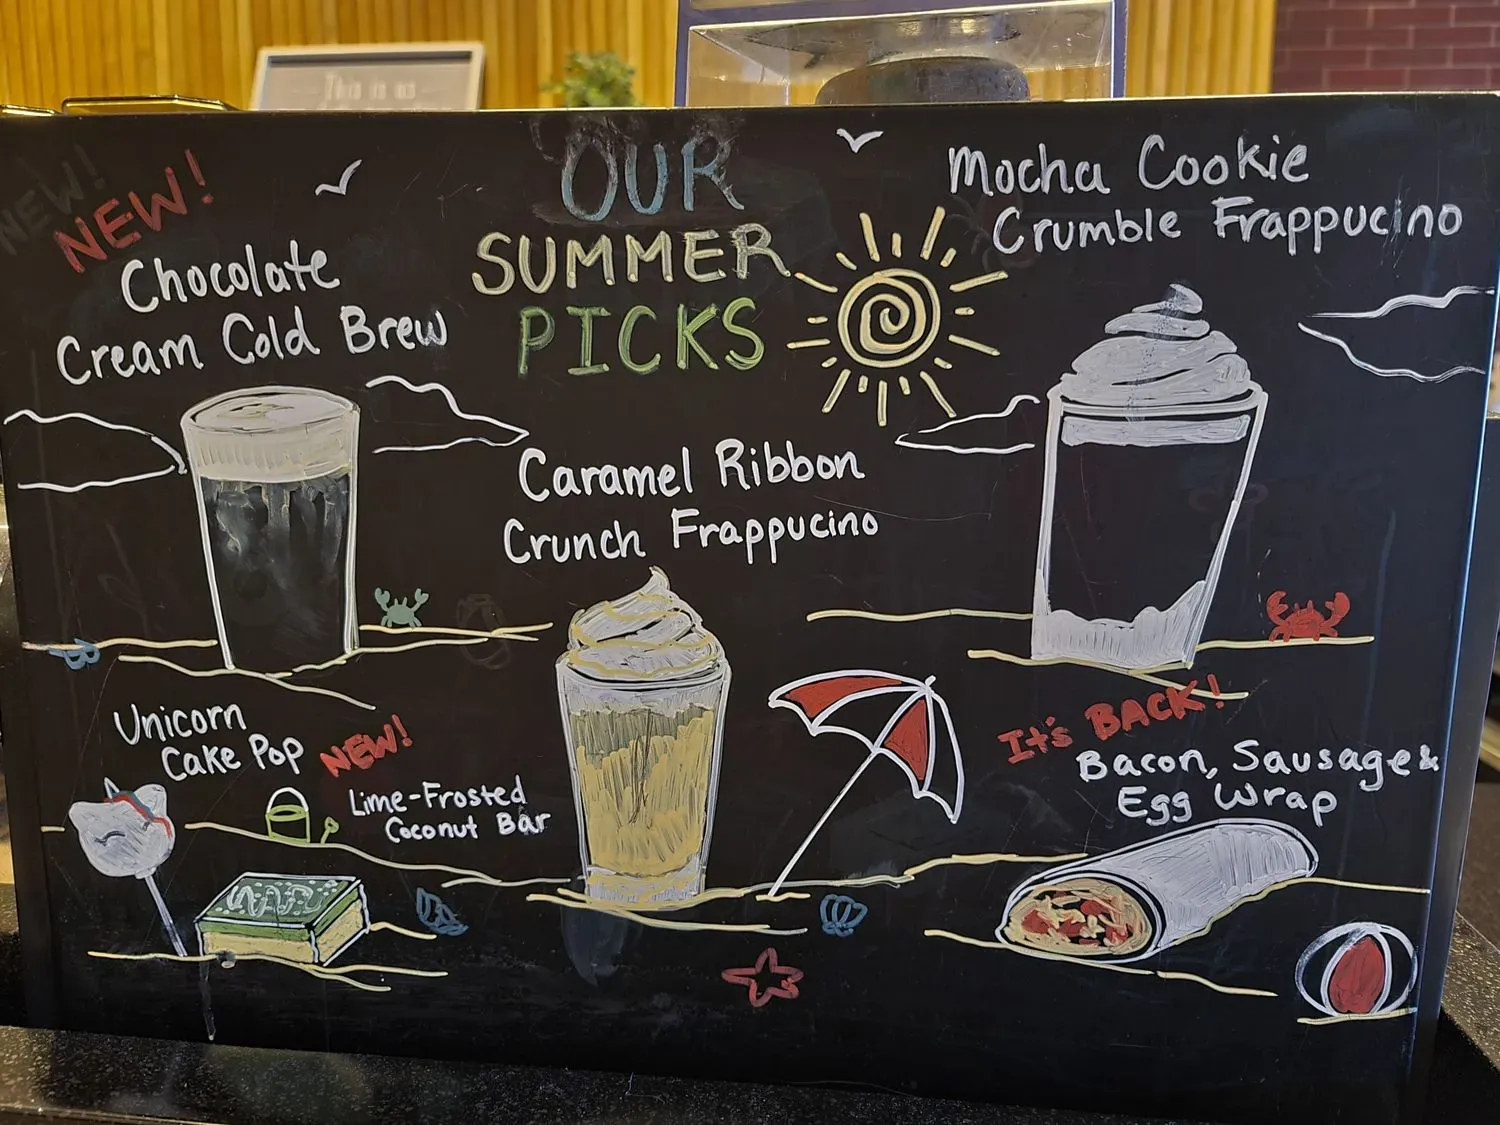 This is us
NEW!
NEW!
OUR
SUMMER
PICKS
Chocolate
Cream Cold Brew
Mocha Cookie
Crumble Frappuccino
Caramel Ribbon
Crunch Frappucino
Unicorn
Cake Pop
NEW!
Lime-Frosted
Coconut Bar
It's BACK!
Bacon, Sausage &
Egg Wrap